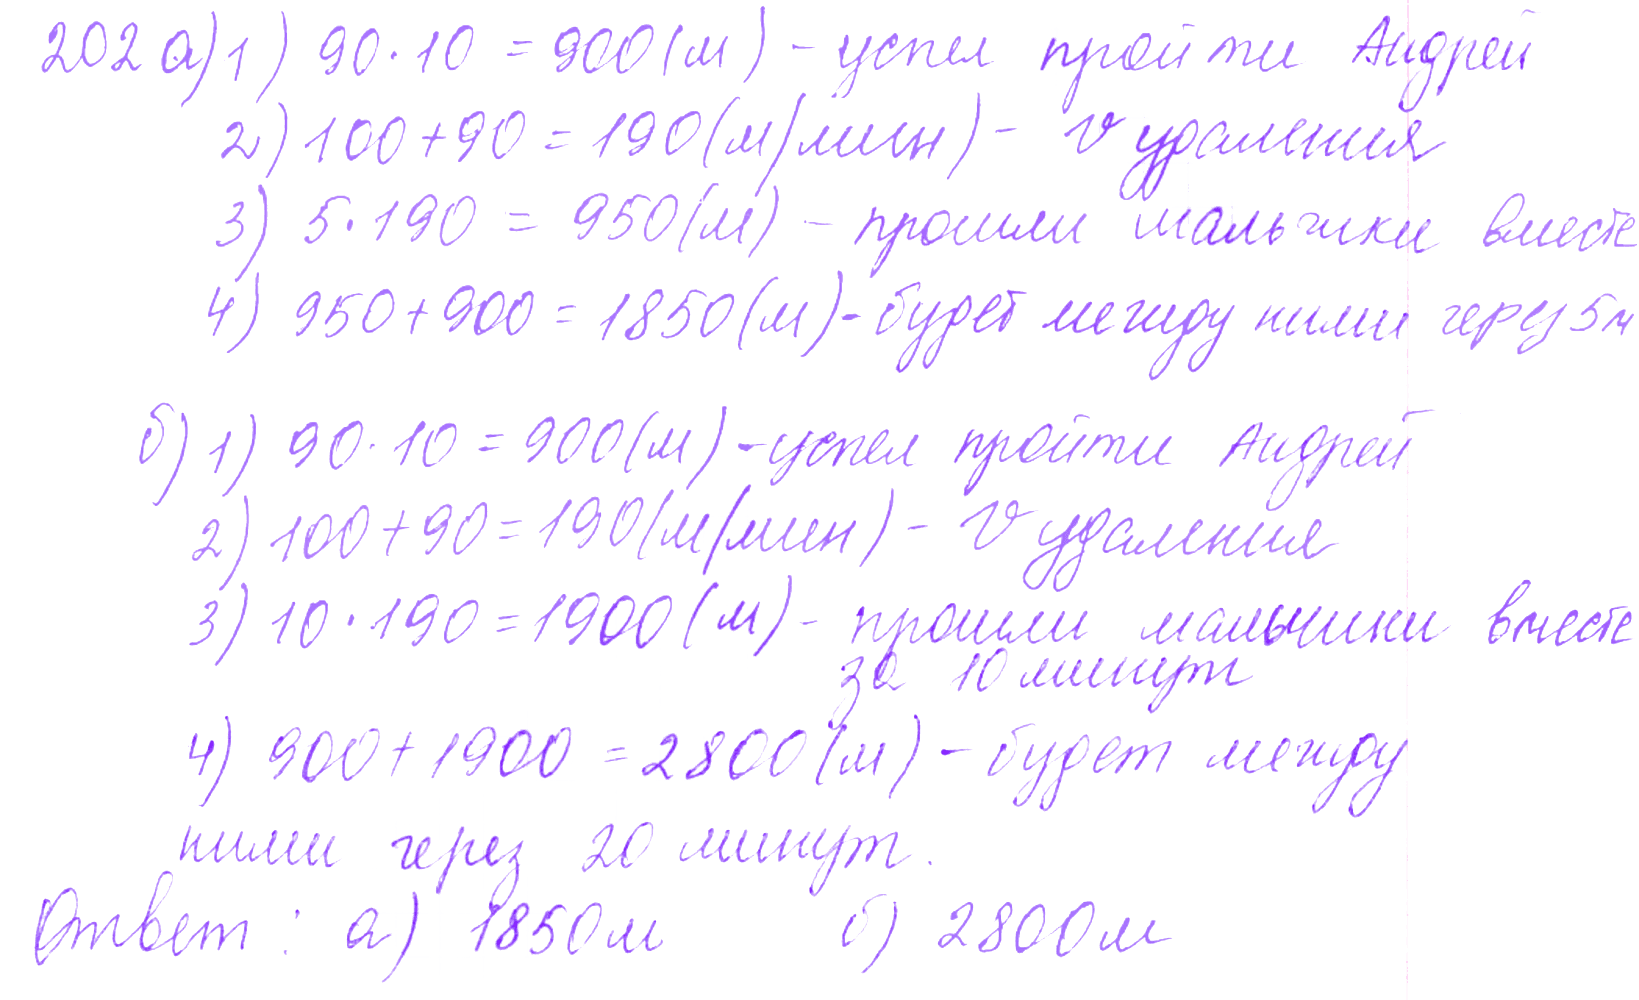 202 а) 1) 90·10 = 900 (м) - успел пройти Андрей
2) 100+90 = 190 (м/мин) - v удаления
3) 5·190 = 950 (м) - прошли мальчики вместе
4) 950+900 = 1850 (м) - будет между ними через 5м
б) 1) 90·10 = 900 (м) - успел пройти Андрей
2) 100+90 = 190 (м/мин) - v удаления
3) 10·190 = 1900 (м) - прошли мальчики вместе
за 10 минут
4) 900+1900 = 2800 (м) - будет между
ними через 20 минут.
Ответ: а) 1850м б) 2800м